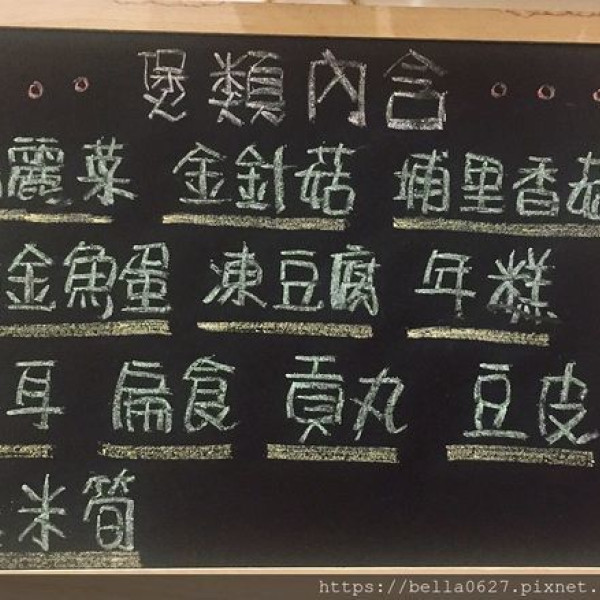 煲類內含
麗菜 金針菇 埔里香菇
金魚蛋 凍豆腐 年糕
耳 扁食 貢丸 豆皮
米筍
https://bella0627.pixnet.